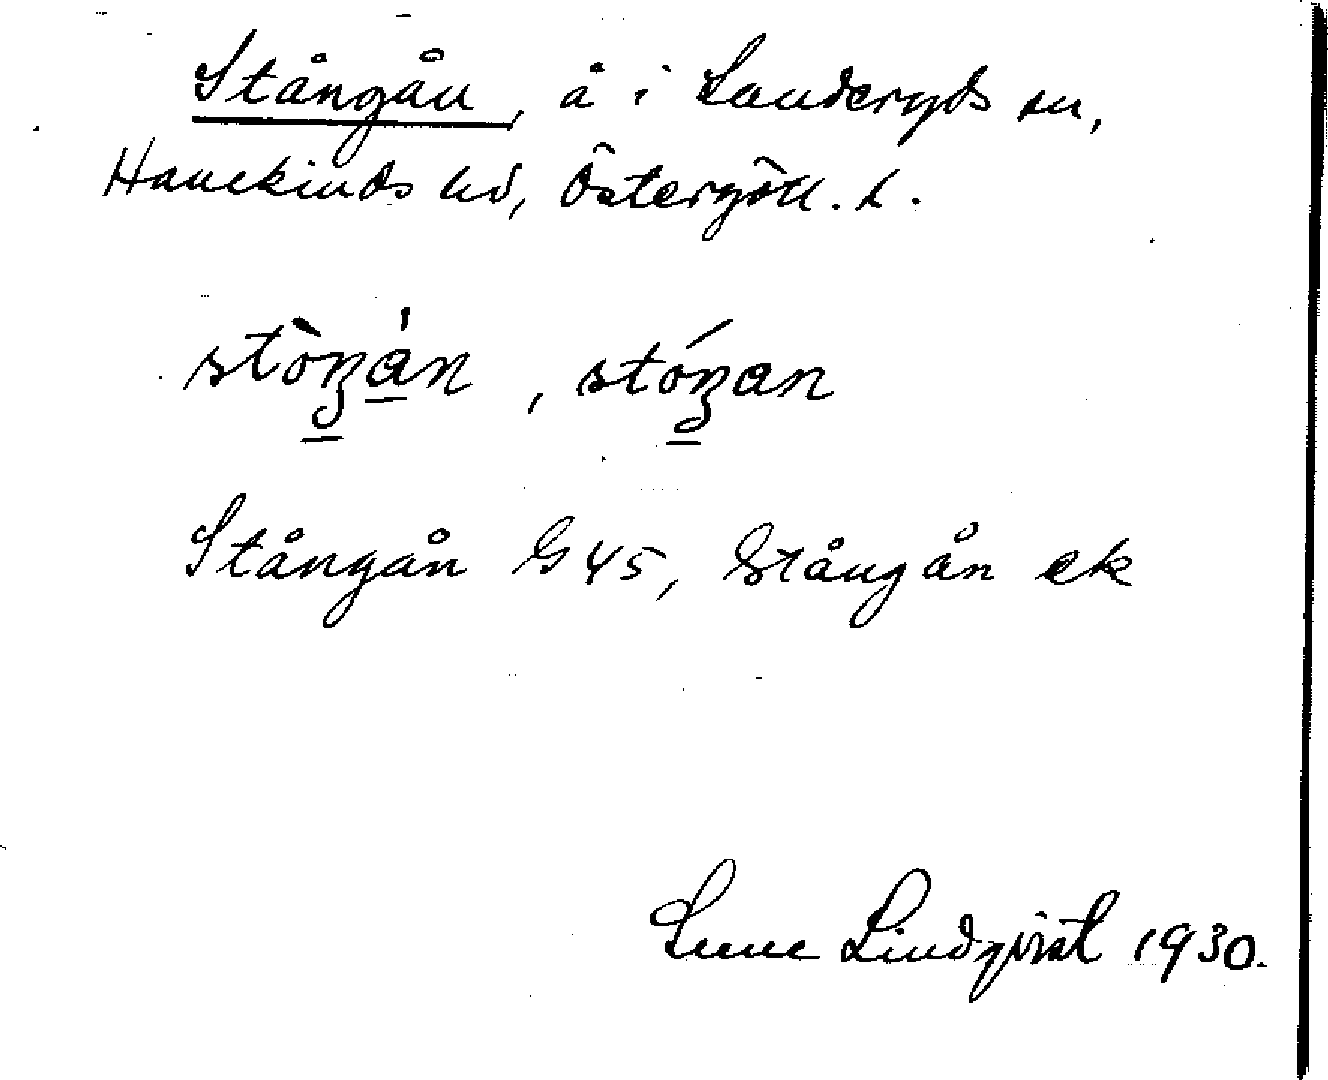 Stångån, å i Landeryds sn,
Hanekinds hd, Östergötl. l.
stòŋán, stóŋan
Stångån G 45, Stångån ek
Sune Lindqvist 1930.